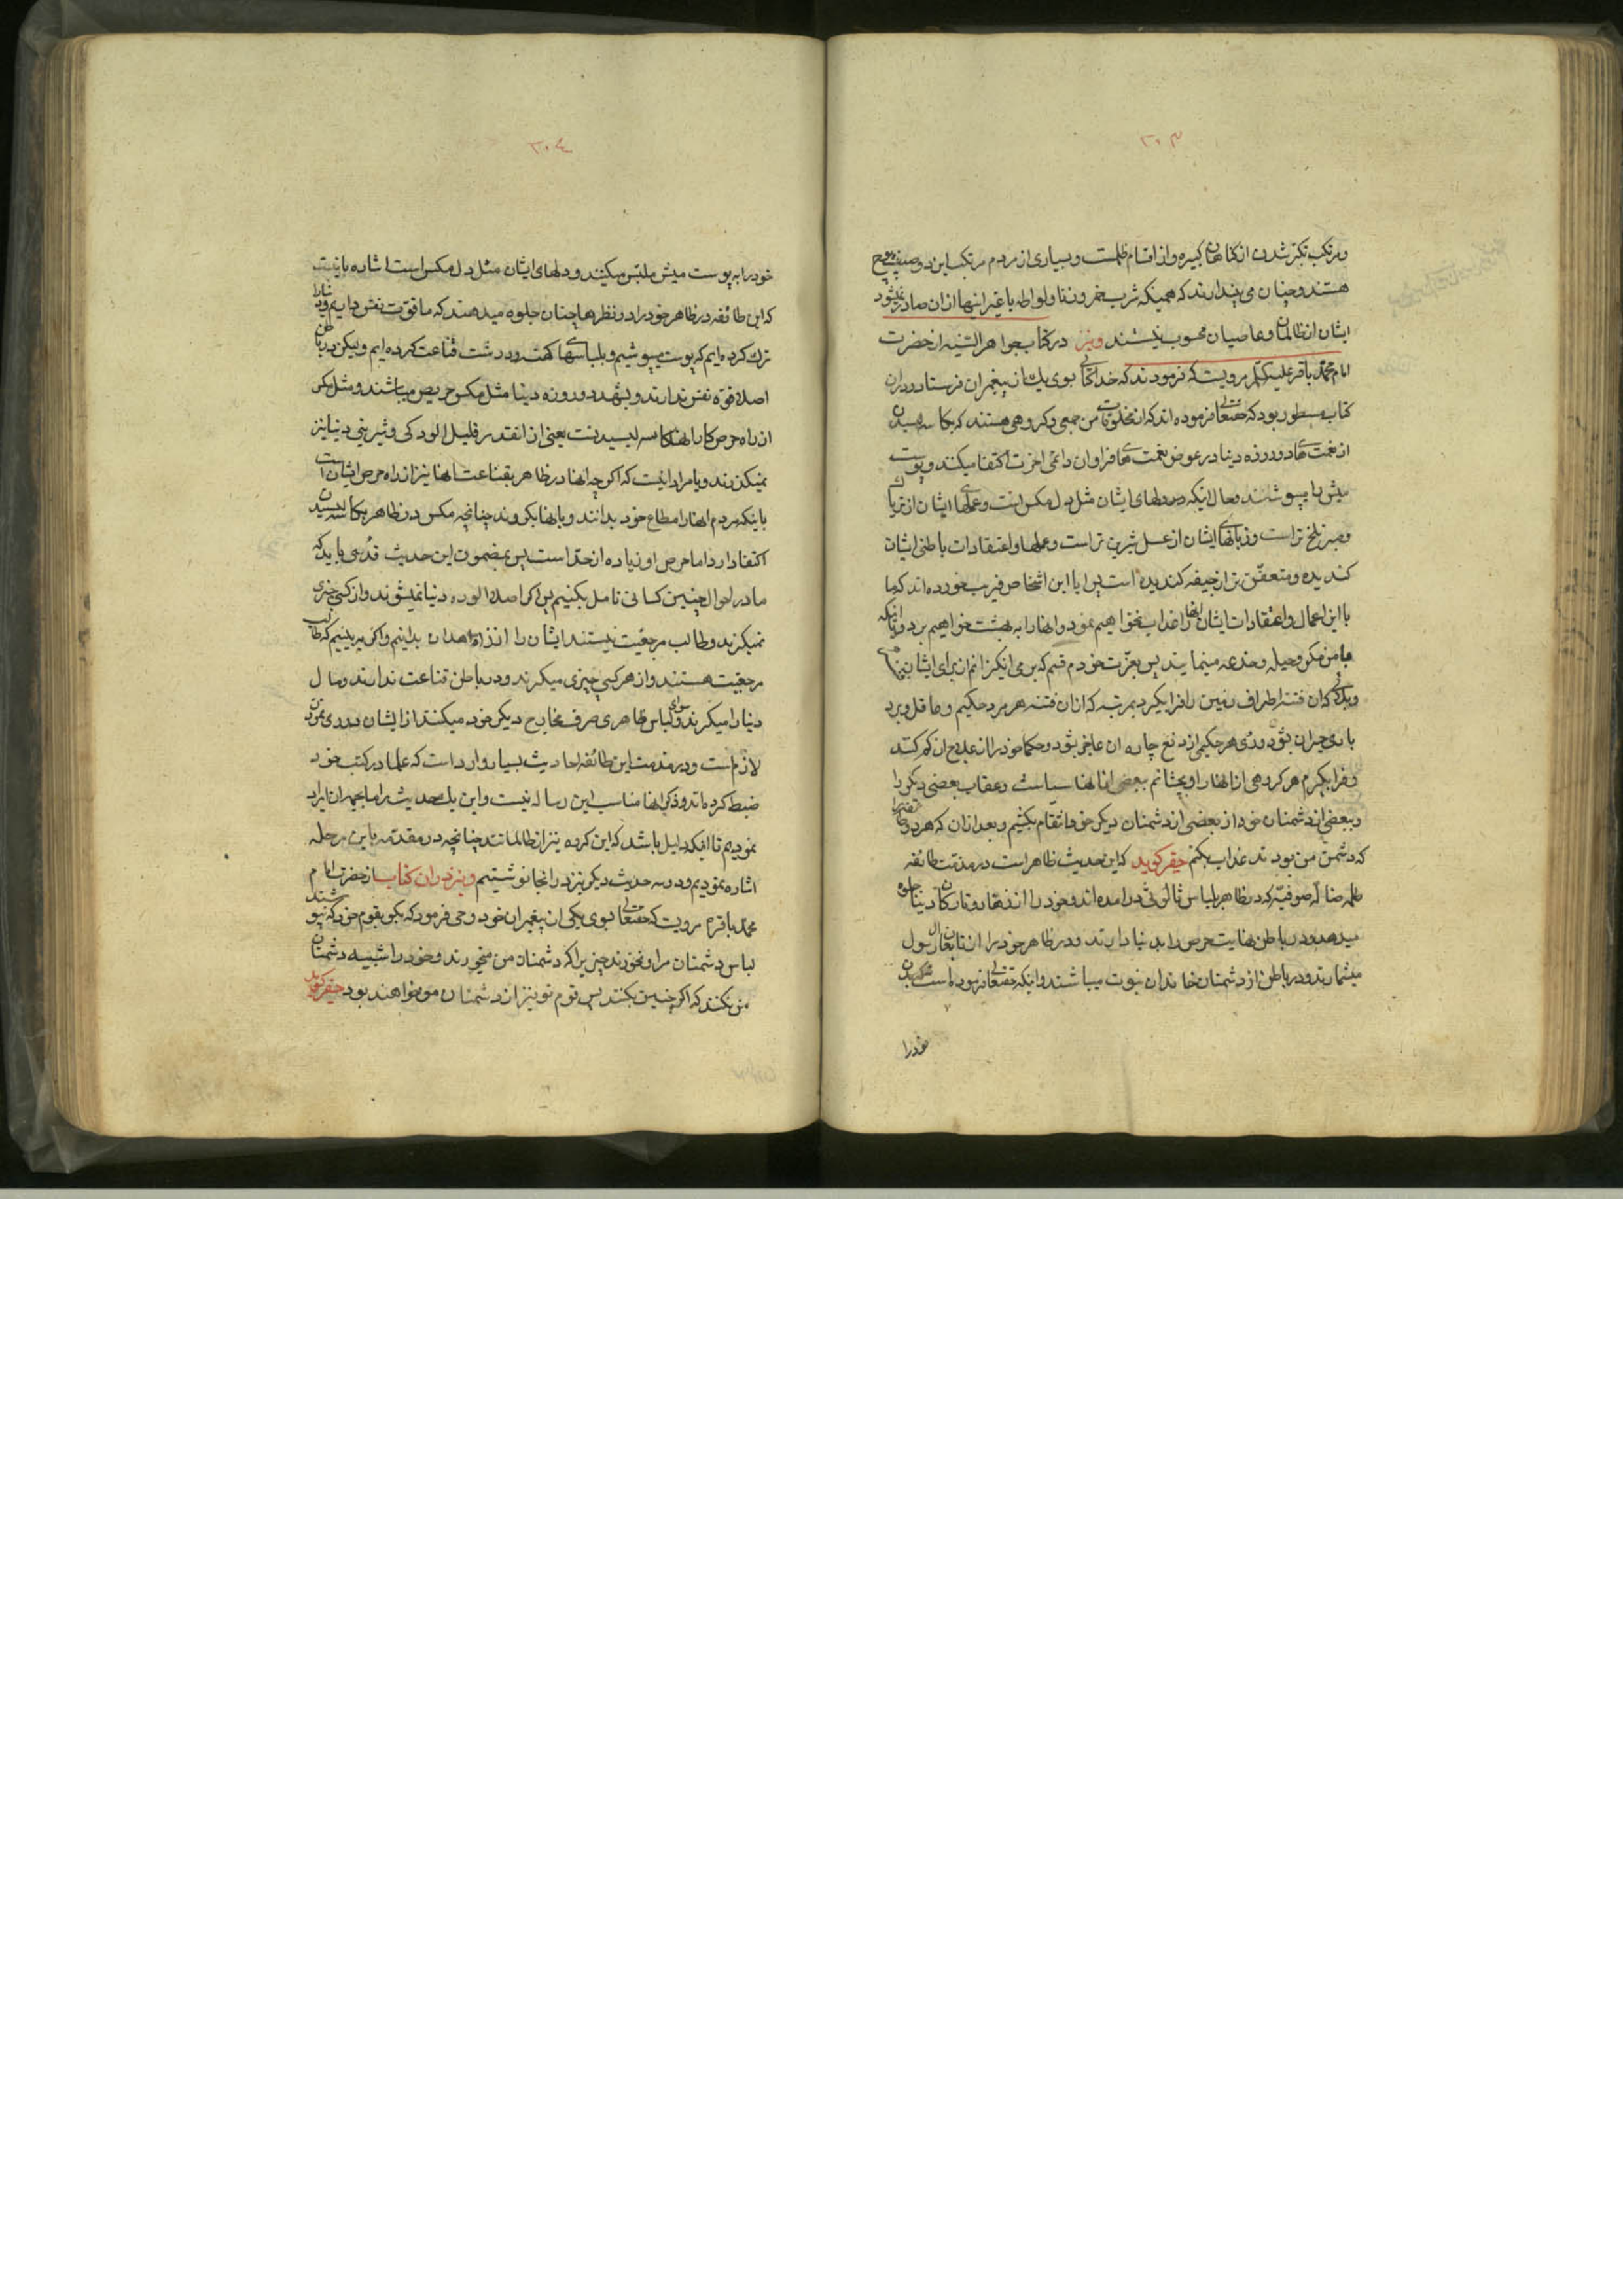 ۳۰۳
ومرتکب تکبر شدن از کناهان کبیره واز اقسام ظلمست وبسیاری از مردم مرتکب این دو صفت قبیح
هستند وچنان می پندارند که همینکه شرب خمر وزنا ولواطه یا غیر اینها از ان صادر نمیشود
ایشان از ظالمان وعاصیان محسوب نیستند ونیز در کتاب جواهر السنیه از حضرت
امام محمد باقر علیه مرویست که فرمودند که خدایتعالی بسوی یک از پیغمبران فرستاد ودران
کتاب مسطور بود که حقتعالی فرموده اند که از مخلوقات من جمعی وکروهی هستند که بکاسه لیسیدن
از نعمت های دو روزه دنیا در عوض نعمت های فراوان دائمی اخرت اکتفا میکنند وپوست
میش را میپوشند وحال اینکه دلهای ایشان مثل دل مکس است وعملهای ایشان از تریاک
وصبر تلخ تر است وزبانهای ایشان از عسل شیرین تر است وعملها واعتقادات باطنی ایشان
کندیده ومتعفن تر از جیفه کندیده است پس ایا این اشخاص فریب خورده اند که ما
با این اعمال واعتقادات ایشان انها را عذاب نخواهیم نمود وانها را به بهشت خواهیم برد ویا اینکه
با من مکر وحیله وخدعه مینمایند پس بعزت خودم قسم که بر می انکیزانم از برای ایشان
که ان فتنه اطراف زمین را فرا بکیرد بمرتبه که از ان فتنه هر مرد حکیم وعاقل وبرد
باری حیران بشود ورأی هر حکیمی از دفع چاره ان عاجز بشود وحکما خود را از علاج ان کم کنند
وفرا بکیرم هر کروهی از انها را وبچشانم ببعضی از انها سیاست وعقاب بعضی دیکر را
وببعضی از دشمنان خود از بعضی از دشمنان دیکر خود انتقام بکشیم وبعد از ان که هر دو
که دشمن من بودند عذاب بکنم حقیر کوید که این حدیث ظاهر است در مذمت طائفه
صوفیه که در ظاهر بلباس در امده اند وخود را از زهاد وتارکان دنیا جلوه
میدهد ودر باطن نهایت حرص را بدنیا دارند ودر ظاهر خود را از تابعان رسول
میشمارند ودر باطن از دشمنان خاندان نبوت میباشند واینکه حقتعالی فرموده است
خود را
۳۰۴
خود را به پوست میش ملتبس میکنند ودلهای ایشان مثل دل مکس است اشاره باینست
که این طائفه در ظاهر خود را در نظرها چنان جلوه میدهند که ما قوت نفس داریم ودنیا را
ترک کرده ایم که پوست میپوشیم وبلباسهای کهنه ودرشت قناعت کرده ایم ولیکن در باطن
اصلا قوه نفس ندارند وبشهد دو روزه دنیا مثل مکس حریص میباشند ومثل مکس
از راه حرص کار انها کاسه لیسیدنست یعنی از انقدر قلیل الودکی وشیرینی دنیا نیز
نمیکذرند ویا مراد اینست که اکرچه انها در ظاهر بقناعت انها نیز از راه حرص ایشان است
باینکه مردم انها را مطاع خود بدانند وبانها بکروند چنانچه مکس در ظاهر بکاسه لیسیدن
اکتفا دارد اما حرص او زیاده از حد است پس بمضمون این حدیث قدسی باید که
ما در احوال چنین کسانی تامل بکنیم پس اکر اصلا الوده دنیا نمیشوند واز کسی چیزی
نمیکیرند وطالب مرجعیت نیستند ایشان را از زاهدان بدانیم واکر ببینیم که طالب
مرجعیت هستند واز هر کسی چیزی میکیرند ودر باطن قناعت ندارند ومال
دنیا را میکیرند وسوای لباس ظاهری صرف مخارج دیکر خود میکنند از ایشان دوری نمودن
لازم است ودر مذمت این طائفه احادیث بسیار وارد است که علما در کتب خود
ضبط کرده اند وذکر انها مناسب این رساله نیست واین یک حدیث را ما بجهت ان ایراد
نمودیم تا اینکه دلیل باشد که این کروه نیز از ظالمانند چنانچه در مقدمه باین مرحله
اشاره نمودیم ودو سه حدیث دیکر نیز در انجا نوشتیم ونیز در ان کتاب از حضرت امام
محمد باقر ع مرویست که حقتعالی بسوی یکی از پیغمبران خود وحی فرمود که بکو بقوم خود که نپوشند
لباس دشمنان مرا ونخورند چیزیرا که دشمنان من میخورند وخود را شبیه دشمنان
من نکنند که اکر چنین بکنند پس قوم تو نیز از دشمنان من خواهند بود حقیر کوید